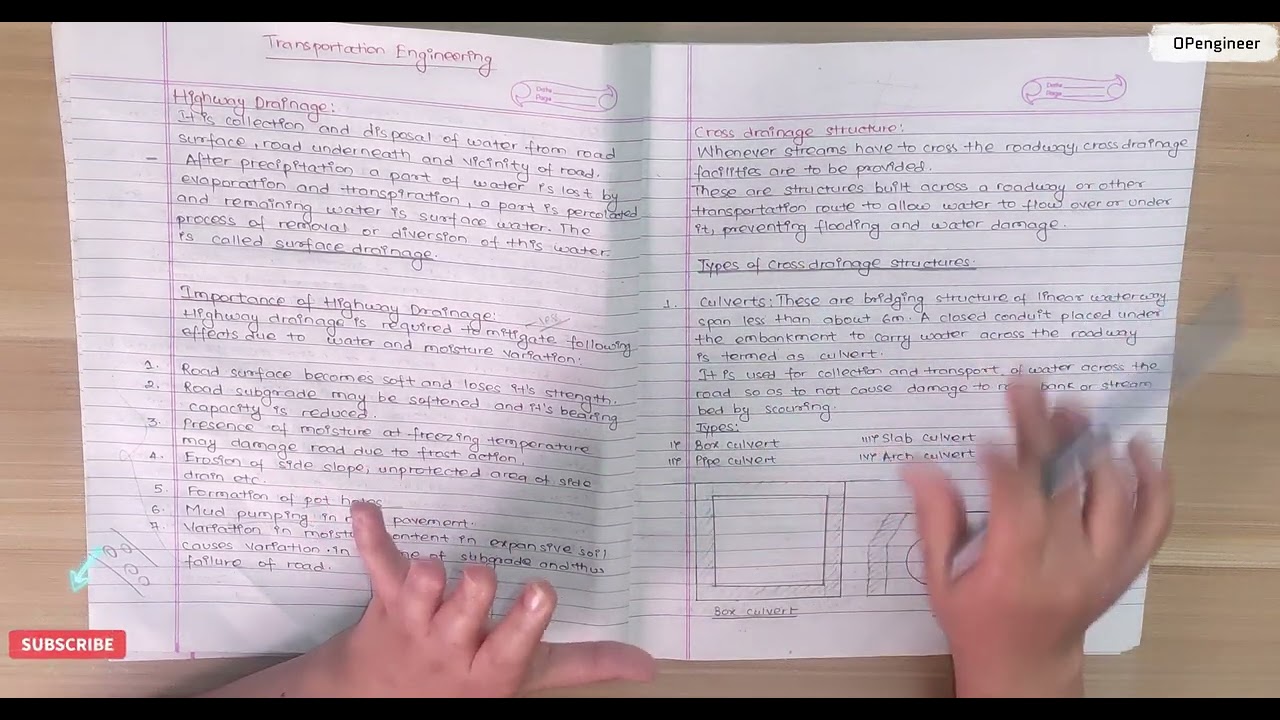 OPengineer
Transportation Engineering
Date
Page
Highway Drainage:
It is collection and disposal of water from road
surface, road underneath and vicinity of road.
- After precipitation a part of water is lost by
evaporation and transpiration, a part is percolated
and remaining water is surface water. The
process of removal or diversion of this water
is called surface drainage.
Importance of Highway Drainage:
Highway drainage is required to mitigate following
effects due to water and moisture variation:
1. Road surface becomes soft and loses it's strength.
2. Road subgrade may be softened and it's bearing
capacity is reduced.
3. Presence of moisture at freezing temperature
may damage road due to frost action.
4. Erosion of side slope, unprotected area of side
drain etc.
5. Formation of pot holes
6. Mud pumping in pavement.
7. Variation in moisture content in expansive soil
causes variation in of subgrade and thus
failure of road.
SUBSCRIBE
Date
Page
Cross drainage structure:
Whenever streams have to cross the roadway, cross drainage
facilities are to be provided.
These are structures built across a roadway or other
transportation route to allow water to flow over or under
it, preventing flooding and water damage.
Types of cross drainage structures.
1. Culverts: These are bridging structure of linear waterway
span less than about 6m. A closed conduit placed under
the embankment to carry water across the roadway
is termed as culvert.
It is used for collection and transport of water across the
road so as to not cause damage to bank or stream
bed by scouring.
Types:
i) Box culvert iii) Slab culvert
ii) Pipe culvert iv) Arch culvert
Box culvert